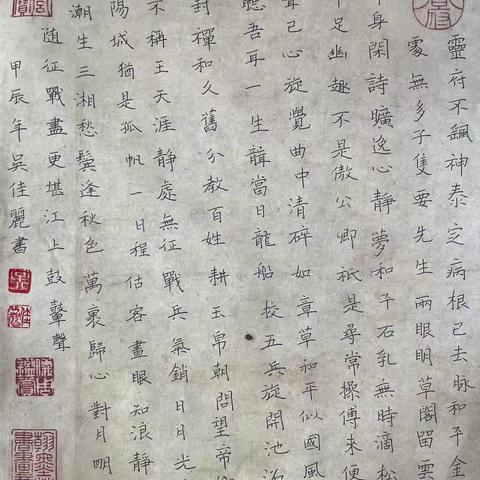 靈府不飆神泰定病根已去脉和平金
處無多子隻要先生兩眼明草閣留雲
身閑詩曠逸心靜夢和平石乳無時滴松
足幽趣不是傲公卿祇是尋常操傅來便
己心旋覺曲中清碎如章草和平似國風
聽吾耳一生聾當日龍船校五兵旋開池沼
封禪和久舊分教百姓耕玉帛朝問望帝
不稱王天涯靜處無征戰兵氣銷日月光
陽城猶是孤帆一日程估客畫眼知浪靜
潮生三湘愁鬢逢秋色萬裏歸心對月明
随征戰盡更堪江上鼓鼙聲
甲辰年吳佳麗書